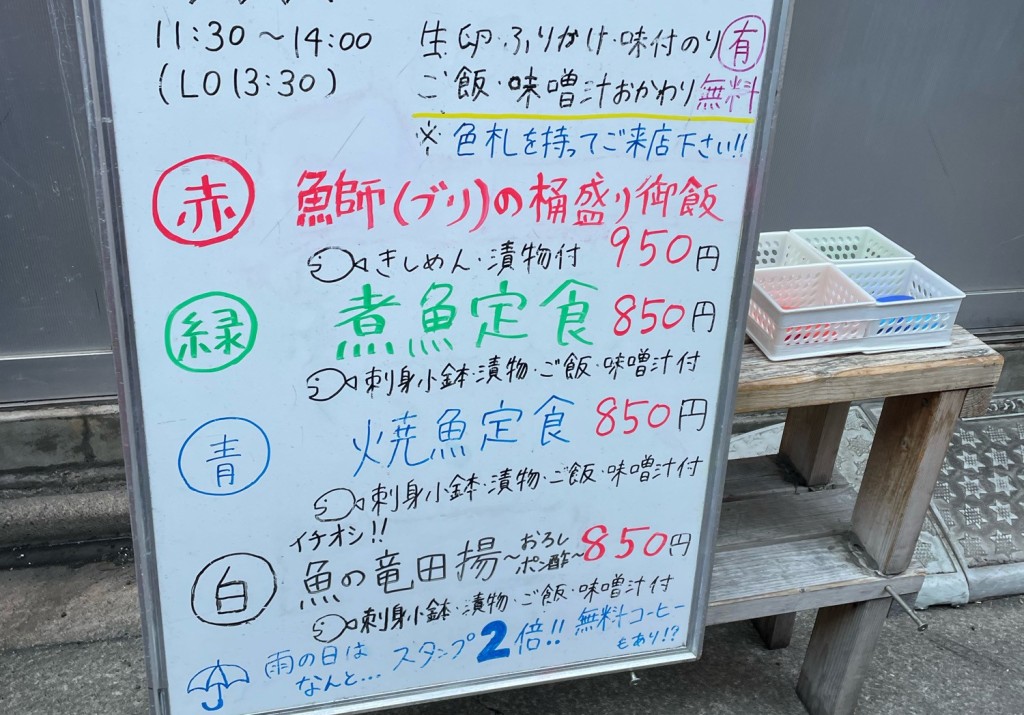 11:30～14:00
(LO13:30)
生卵・ふりかけ・味付のり有
ご飯・味噌汁おかわり無料
※色札を持ってご来店下さい!!
赤 魚師(ブリ)の桶盛り御飯
きしめん・漬物付 950円
緑 煮魚定食 850円
刺身小鉢・漬物・ご飯・味噌汁付
青 焼魚定食 850円
刺身小鉢・漬物・ご飯・味噌汁付
イチオシ!!
白 魚の竜田揚 ～おろしポン酢～ 850円
刺身小鉢・漬物・ご飯・味噌汁付
雨の日はなんと… スタンプ2倍!! 無料コーヒーもあり!?